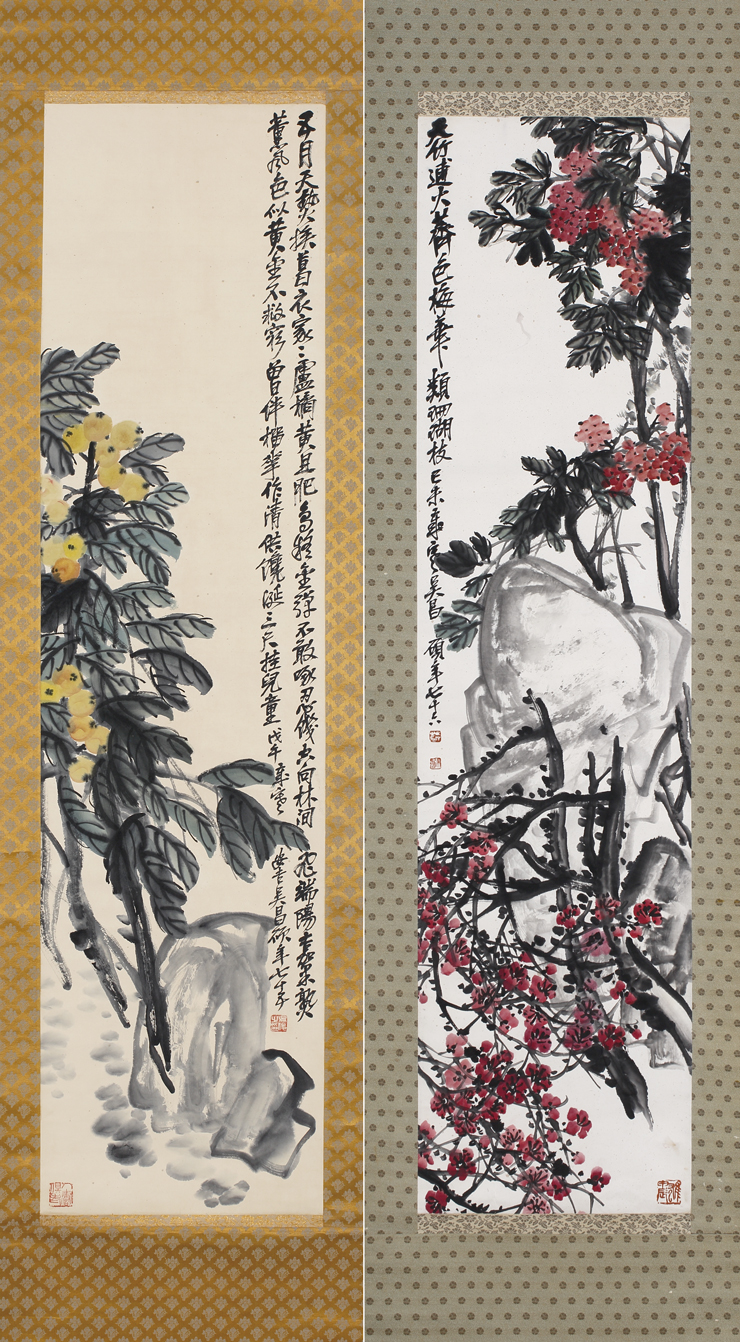 天竹火色梅華類珊瑚枝 己未歲寒 吳昌碩年七十六
五月天熱換葛衣家〻盧橘黃且肥鳥疑金彈不敢啄忍饑空向林間飛端陽嘉果熟
薰風色似黃金不救窮曾伴榴華作清供饞涎三尺挂兒童 戊午歲寒 安吉吳昌碩年七十五